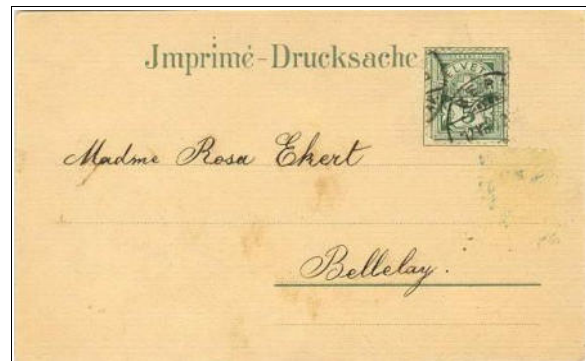 Imprimé-Drucksache
HELVETIA
5
Madme Rosa Ekert
Bellelay.